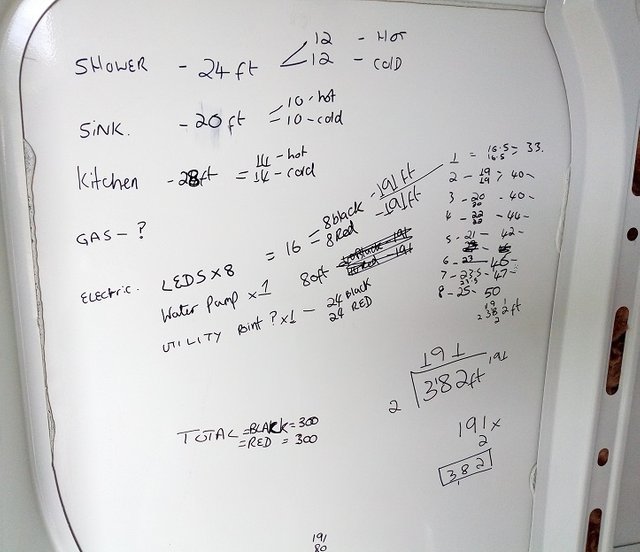 SHOWER - 24 ft < 12 - HOT
12 - COLD
SINK. - 20 ft = 10 - hot
= 10 - cold
Kitchen - 28ft = 14 - hot
= 14 - cold
GAS - ?
ELECTRIC. LEDS x 8 = 16 - 8 black - 191 ft
= 8 Red - 191 ft
Water Pump x 1 80ft
UTILITY Point ? x 1 - 24 Black
24 RED
TOTAL = BLACK = 300
= RED = 300
1 = 16.5 = 33.
16.5
2 - 19 > 40 -
19
3 - 20 - 40 -
20
4 - 22 - 44 -
22
5 - 21 - 42 -
6 - 23 - 46 -
7 - 23.5 - 47 -
23.5
8 - 25 - 50
382 ft
191
2 382ft 191
191 x
2
382
191
80